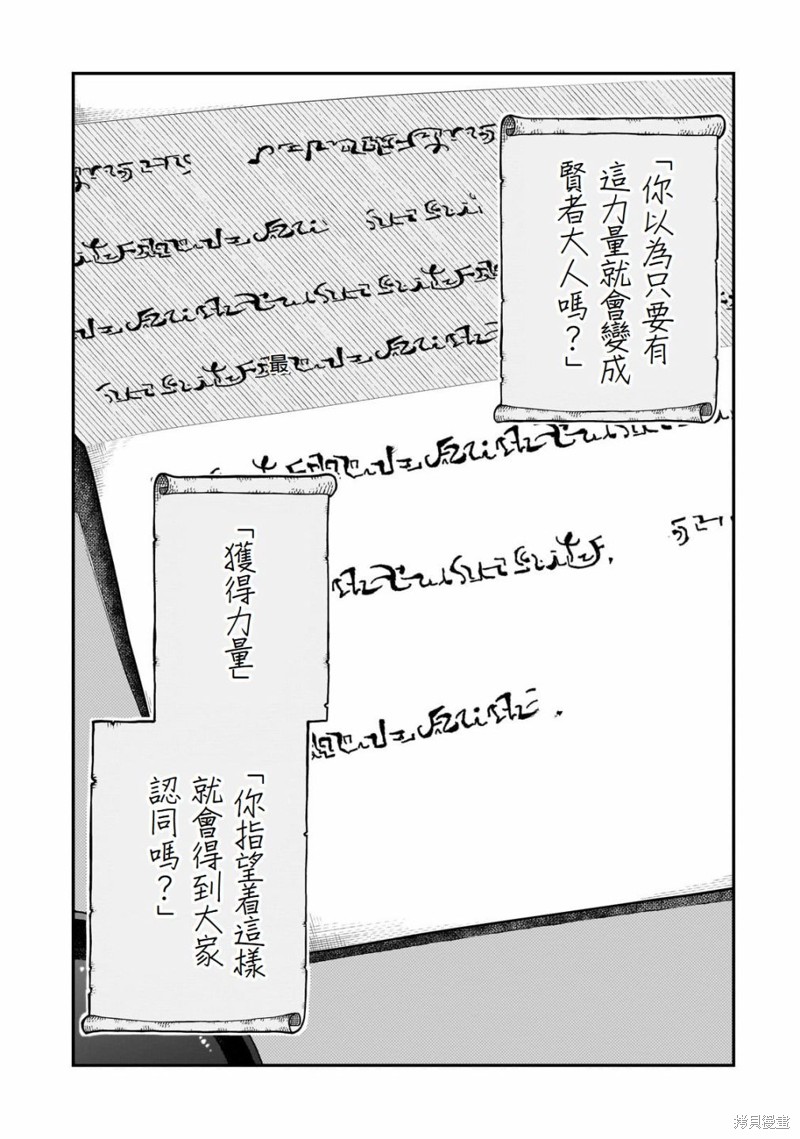 「你以為只要有
這力量就會變成
賢者大人嗎？」
最
「獲得力量」
「你指望着這樣
就會得到大家
認同嗎？」
拷貝漫畫